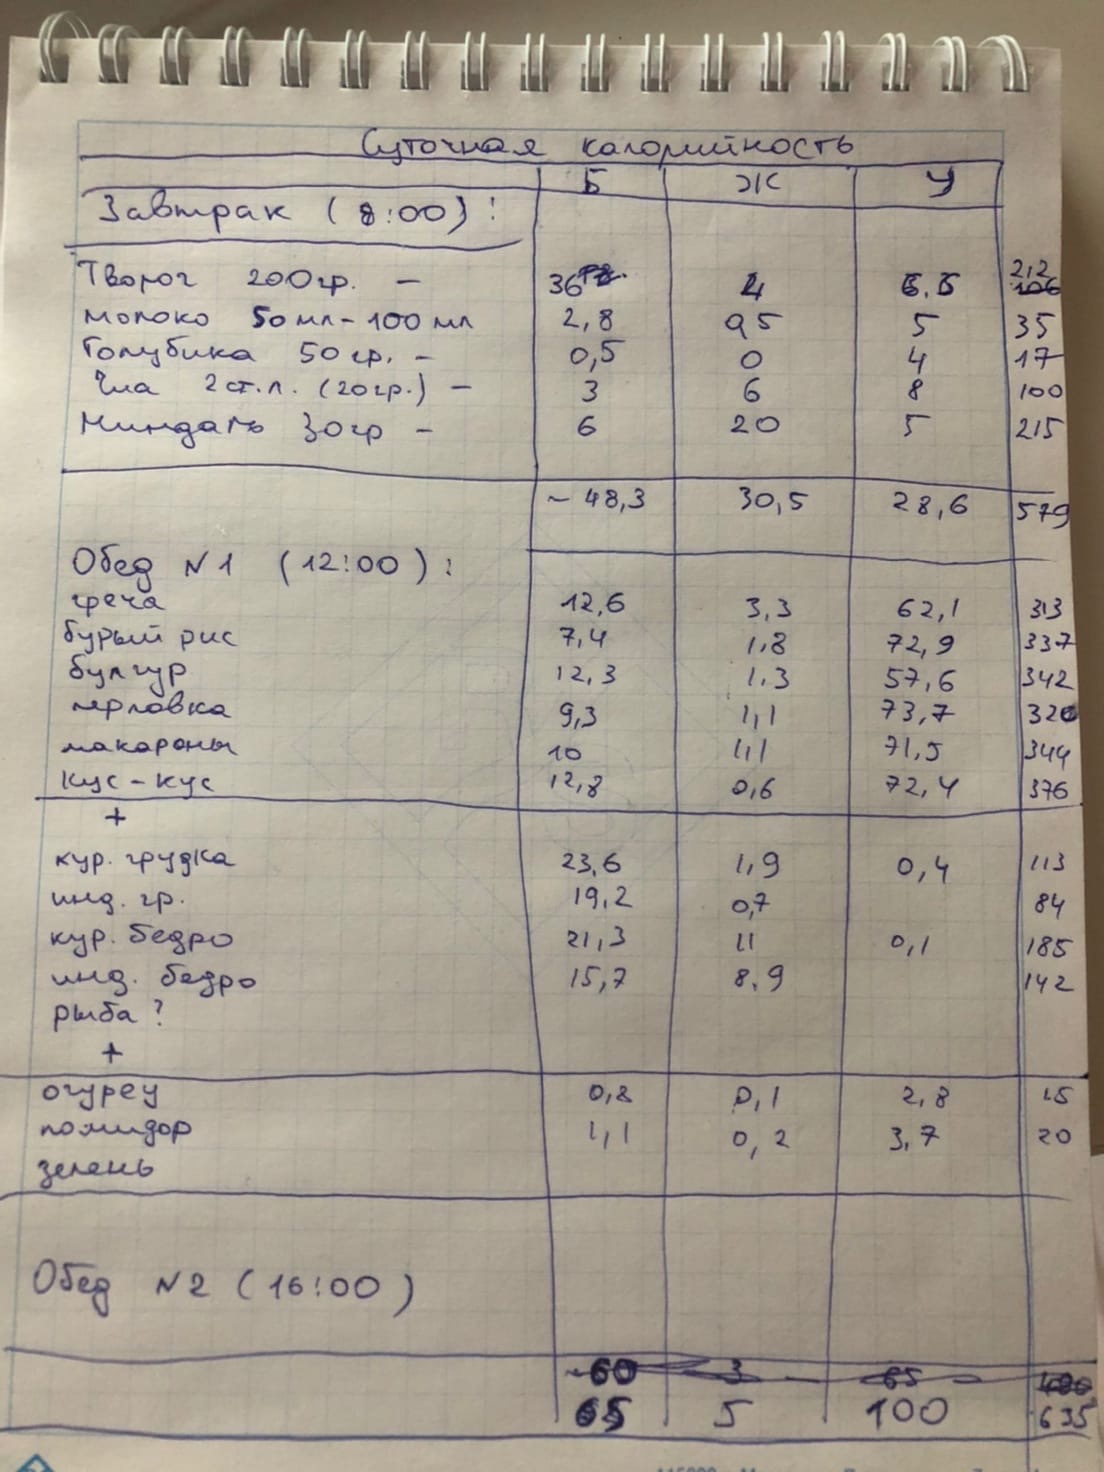 Суточная калорийность
Б Ж У
Завтрак (8:00):
Творог 200гр. — 36 4 6.6 212
молоко 50мл-100мл 2,8 0,5 5 35
Голубика 50гр. — 0,5 0 4 17
Чиа 2ст.л. (20гр.) — 3 6 8 100
Миндаль 30гр — 6 20 5 215
~ 48,3 30,5 28,6 579
Обед N1 (12:00):
греча 12,6 3,3 62,1 313
бурый рис 7,4 1,8 72,9 337
булгур 12,3 1.3 57,6 342
перловка 9,3 1,1 73,7 320
макароны 10 1,1 71,5 344
кус-кус 12,8 0,6 72,4 376
+
кур. грудка 23,6 1,9 0,4 113
инд. гр. 19,2 0,7 84
кур. бедро 21,3 11 0,1 185
инд. бедро 15,7 8,9 142
рыба?
+
огурец 0,8 0,1 2,8 15
помидор 1,1 0,2 3,7 20
зелень
Обед N2 (16:00)
60 3 65
65 5 100 635